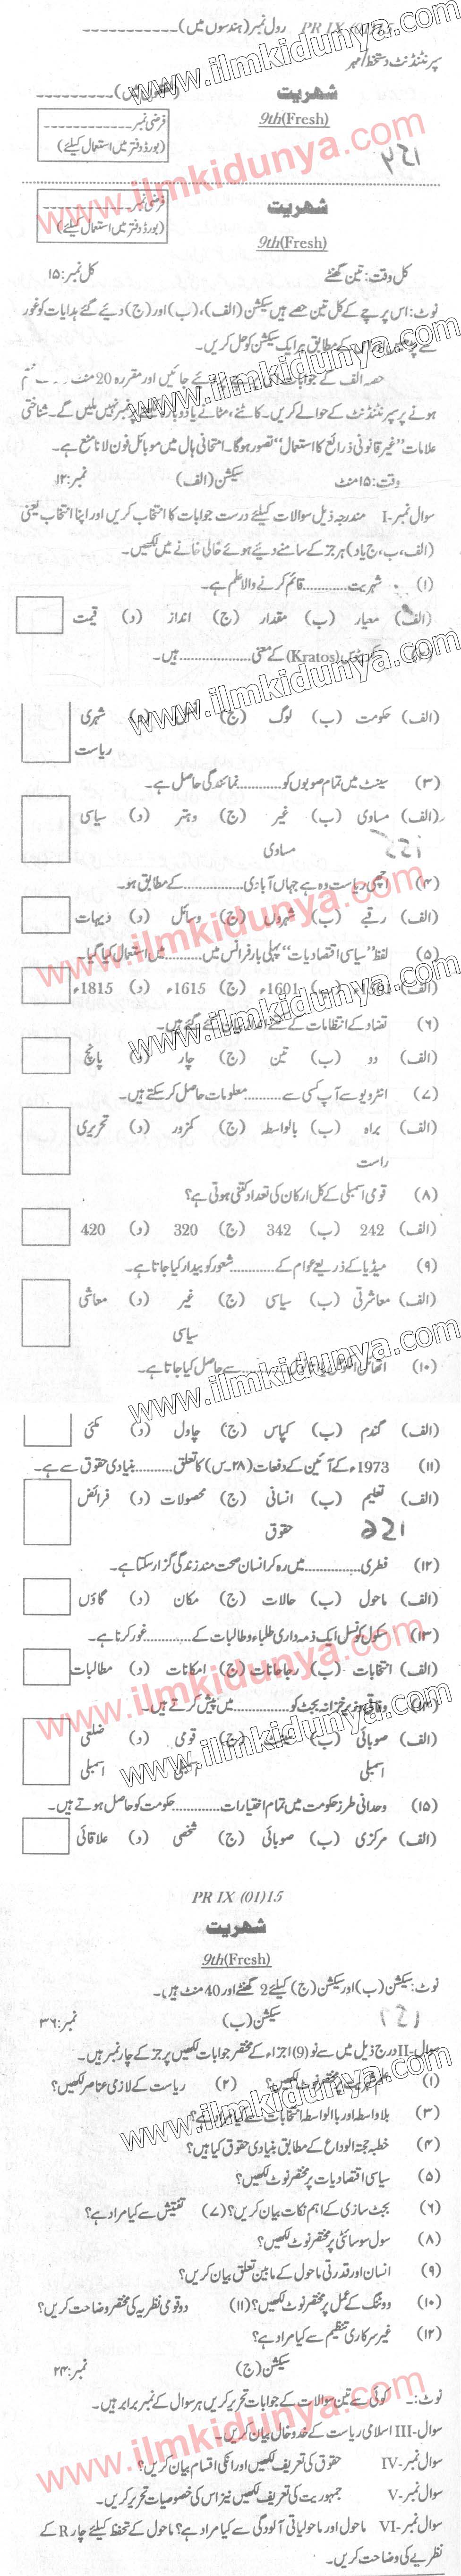 PR IX (01)15 رول نمبر (ہندسوں میں) ------------
سپرنٹنڈنٹ دستخط/مہر
شہریت
9th(Fresh)
فرضی نمبر
(بورڈ دفتر میں استعمال کیلئے)
شہریت
9th(Fresh)
فرضی نمبر
(بورڈ دفتر میں استعمال کیلئے)
کل وقت: تین گھنٹے کل نمبر: ۱۵
نوٹ: اس پرچے کے کل تین حصے ہیں سیکشن (الف)، (ب) اور (ج) دیئے گئے ہدایات کو غور
سے کے مطابق ہر ایک سیکشن کو حل کریں۔
حصہ الف کے جوابات جائیں اور مقررہ 20 منٹ
ہونے پر سپرنٹنڈنٹ کے حوالے کریں۔ کاٹنے، مٹانے یا دوبارہ نمبر نہیں ملیں گے۔ شناختی
علامات "غیر قانونی ذرائع کا استعمال" تصور ہوگا۔ امتحانی ہال میں موبائل فون لانا منع ہے۔
وقت: ۱۵ منٹ سیکشن (الف) نمبر: ۱۲
سوال نمبر-I مندرجہ ذیل سوالات کیلئے درست جوابات کا انتخاب کریں اور اپنا انتخاب یعنی
(الف، ب، ج یا د) ہر جز کے سامنے دیئے ہوئے خالی خانے میں لکھیں۔
(۱) شہریت............قائم کرنے والا علم ہے۔
(الف) معیار (ب) مقدار (ج) انداز (د) قیمت
(Kratos) کے معنی ............ہیں۔
(الف) حکومت (ب) لوگ (ج) (د) شہری
ریاست
(۳) سینٹ میں تمام صوبوں کو............نمائندگی حاصل ہے۔
(الف) مساوی (ب) غیر (ج) وہتر (د) سیاسی
مساوی
(۴) اچھی ریاست وہ ہے جہاں آبادی............کے مطابق ہو۔
(الف) رقبے (ب) شہروں (ج) وسائل (د) دیہات
(۵) لفظ "سیاسی اقتصادیات" پہلی بار فرانس میں............میں استعمال کیا گیا۔
(الف) (ب) 1601ء (ج) 1615ء (د) 1815ء
(۶) تضاد کے انتظامات کے گئے ہیں۔
(الف) دو (ب) تین (ج) چار (د) پانچ
(۷) انٹرویو سے آپ کسی سے............معلومات حاصل کر سکتے ہیں۔
(الف) براہ (ب) بالواسطہ (ج) کمزور (د) تحریری
راست
(۸) قومی اسمبلی کے کل ارکان کی تعداد کتنی ہوتی ہے؟
(الف) 242 (ب) 342 (ج) 320 (د) 420
(۹) میڈیا کے ذریعے عوام کے............شعور کو بیدار کیا جاتا ہے۔
(الف) معاشرتی (ب) سیاسی (ج) غیر (د) معاشی
سیاسی
(۱۰) ............سے حاصل کیا جاتا ہے۔
(الف) گندم (ب) کپاس (ج) چاول (د) مکئی
(۱۱) 1973ء کے آئین کے دفعات (۲۸۔س) کا تعلق............بنیادی حقوق سے ہے۔
(الف) تعلیم (ب) انسانی (ج) محصولات (د) فرائض
حقوق
(۱۲) فطری............میں رہ کر انسان صحت مند زندگی گزار سکتا ہے۔
(الف) ماحول (ب) حالات (ج) مکان (د) گاؤں
(۱۳) سکول کونسل ایک ذمہ داری طلباء و طالبات کے............غور کرنا ہے۔
(الف) انتخابات (ب) رجحانات (ج) امکانات (د) مطالبات
(۱۴) وفاقی وزیر خزانہ بجٹ کو............میں پیش کرتے ہیں۔
(الف) صوبائی (ب) (ج) قومی (د) ضلعی
اسمبلی اسمبلی اسمبلی
(۱۵) وحدانی طرز حکومت میں تمام اختیارات............حکومت کو حاصل ہوتے ہیں۔
(الف) مرکزی (ب) صوبائی (ج) شخصی (د) علاقائی
PR IX (01)15
شہریت
9th(Fresh)
نوٹ: سیکشن (ب) اور سیکشن (ج) کیلئے 2 گھنٹے اور 40 منٹ ہیں۔
سیکشن (ب) نمبر: ۳۶
سوال-II درج ذیل میں سے نو (9) اجزاء کے مختصر جوابات لکھیں ہر جز کے چار نمبر ہیں۔
(۱) نوٹ لکھیں؟ (۲) ریاست کے لازمی عناصر لکھیں؟
(۳) بلاواسطہ اور بالواسطہ انتخابات سے کیا مراد ہے؟
(۴) خطبہ حجۃ الوداع کے مطابق بنیادی حقوق کیا ہیں؟
(۵) سیاسی اقتصادیات پر مختصر نوٹ لکھیں؟
(۶) بجٹ سازی کے اہم نکات بیان کریں؟ (۷) تفتیش سے کیا مراد ہے؟
(۸) سول سوسائٹی پر مختصر نوٹ لکھیں؟
(۹) انسان اور قدرتی ماحول کے مابین تعلق بیان کریں؟
(۱۰) ووٹنگ کے عمل پر مختصر نوٹ لکھیں؟ (۱۱) دو قومی نظریہ کی مختصر وضاحت کریں؟
(۱۲) غیر سرکاری تنظیم سے کیا مراد ہے؟
سیکشن (ج) نمبر: ۲۴
نوٹ:۔ کوئی سے تین سوالات کے جوابات تحریر کریں ہر سوال کے نمبر برابر ہیں۔
سوال-III اسلامی ریاست کے خدوخال بیان کریں۔
سوال نمبر-IV حقوق کی تعریف لکھیں اور انکی اقسام بیان کریں؟
سوال نمبر-V جمہوریت کی تعریف لکھیں نیز اس کی خصوصیات تحریر کریں۔
سوال نمبر-VI ماحول اور ماحولیاتی آلودگی سے کیا مراد ہے؟ ماحول کے تحفظ کیلئے چار R کے
نظریے کی وضاحت کریں۔
www.ilmkidunya.com